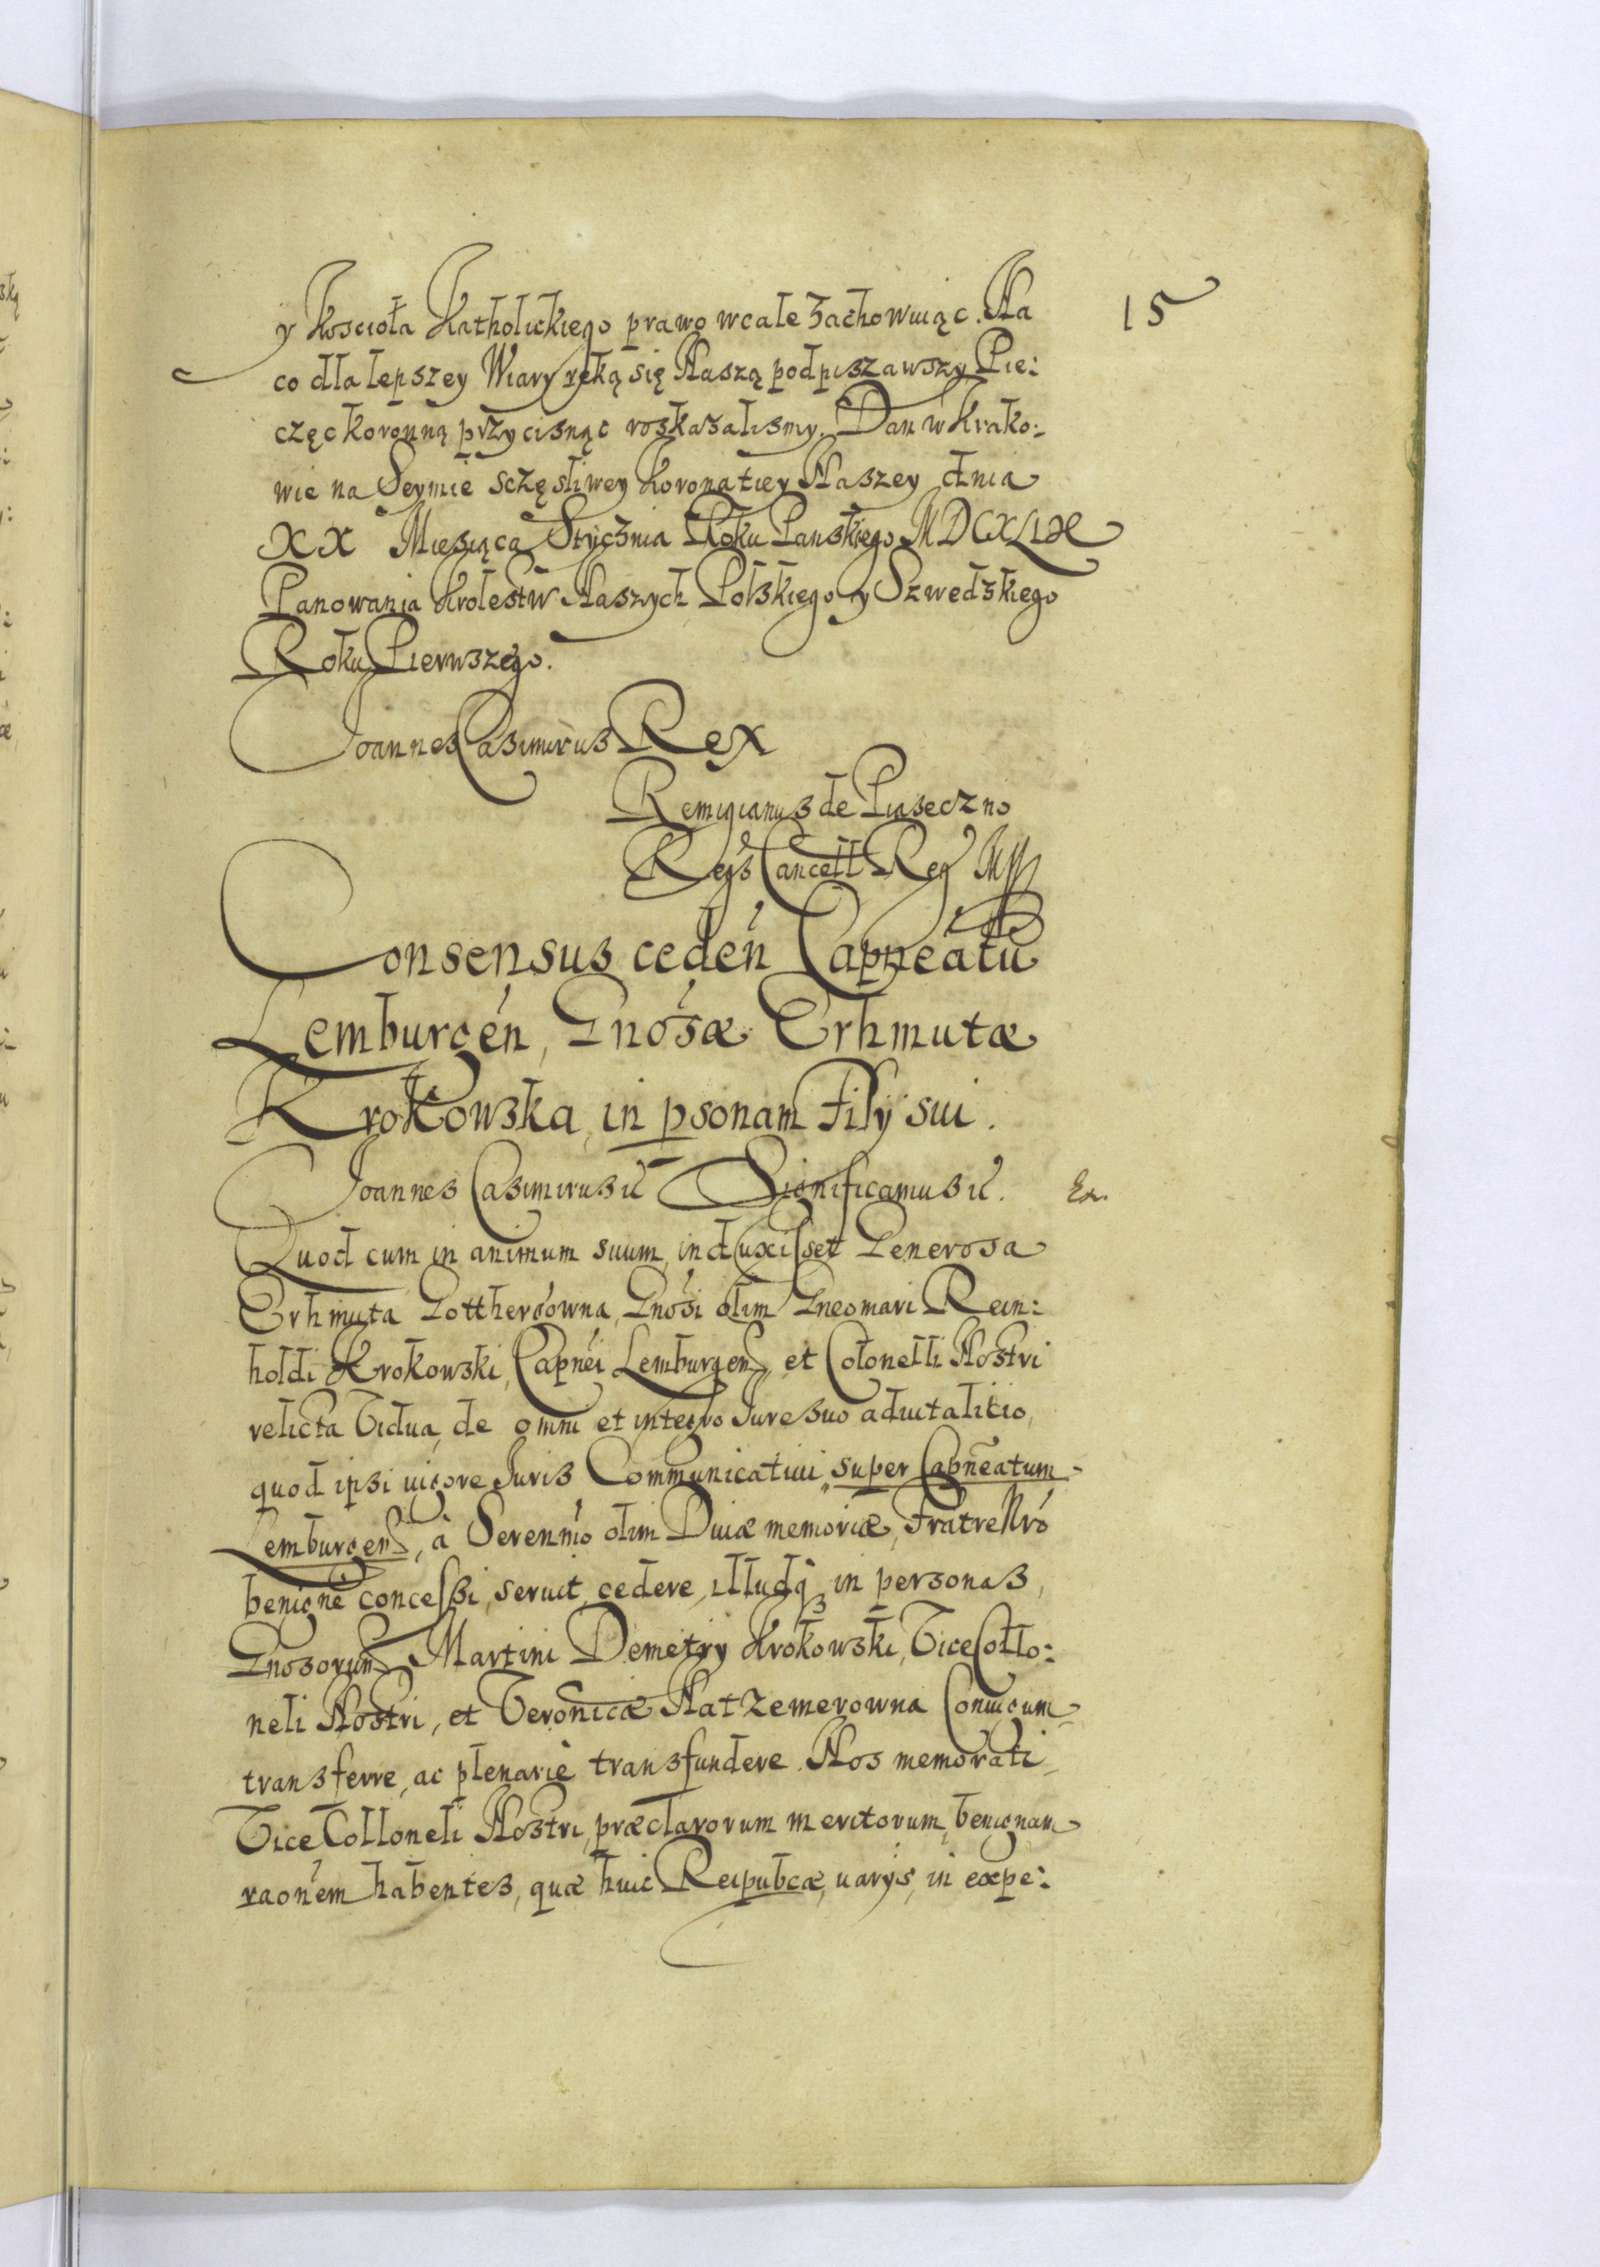 15
y Koscioła Katholickiego prawo wcale zachowuiąc. Na
co dla lepszey Wiary ręką się Naszą podpiszawszy Pie:
częc koronną przycisnąc roskazalismy. Dan w Krako:
wie na Seymie sczęsliwey Koronatiey Naszey dnia
XX Miesiąca Stycznia Roku Panskiego MDCXLIX
Panowania Krolestw Naszych Polskiego y Szwedskiego
Roku Pierwszego.
Joannes Casimirus Rex
Remigianus de Piaseczno
Regs Cancell Reg
Consensus ceden Capneatu
Lemburgen, Gnosæ Erhmutæ
Krokowska, in psonam Filÿ sui.
Joannes Casimirus Significamus
Quod cum in animum suum, induxisset Generosa
Erhmuta Gottbergowna, Gnosi olim Gneomari Rein:
holdi Krokowski, Capnei Lemburgens, et Colonelli Nostri
relicta Vidua, de omni et integro Jure suo aduitalitio,
quod ipsi uigore Juris Communicatiui, super Capneatum
Lemburgens, à Serenmo olim Diuæ memoriæ, Fratre Nro
benigne concessi, seruit, cedere, illudq in personas,
Gnosorum Martini Demetry Krokowski, Vice Collo:
neli Nostri, et Veronicæ Natzemerowna Coniugum
transferre, ac plenariè transfundere. Nos memorati
Vice Colloneli Nostri, præclarorum meritorum, benignam
raonem habentes, quæ huic Reipubcæ, uarys, in expe: